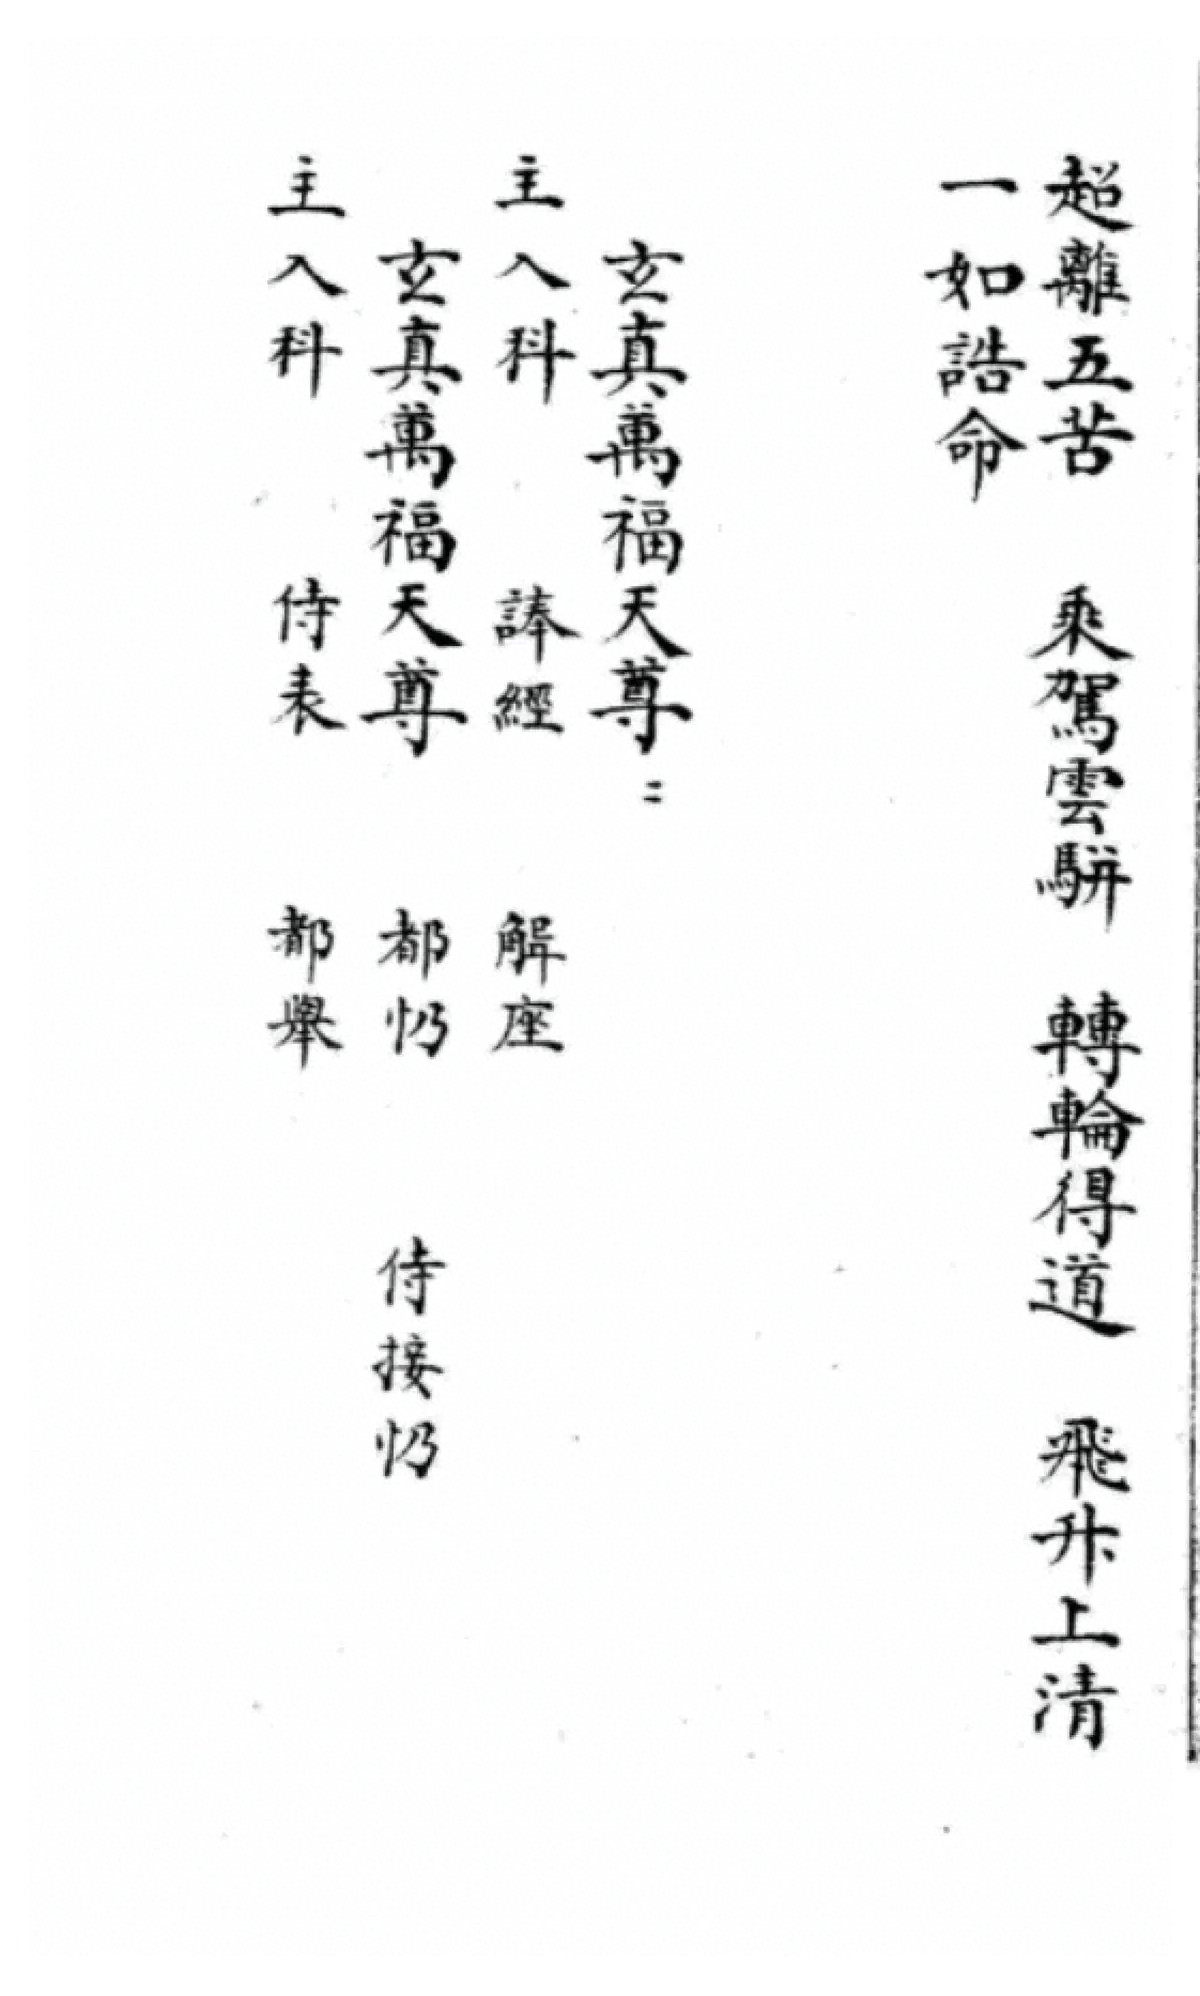 超離五苦　乘駕雲駢　轉輪得道　飛升上清
一如誥命
玄真萬福天尊〻
主入科　諱經　解座
玄真萬福天尊　都忉　侍接忉
主入科　侍表　都舉